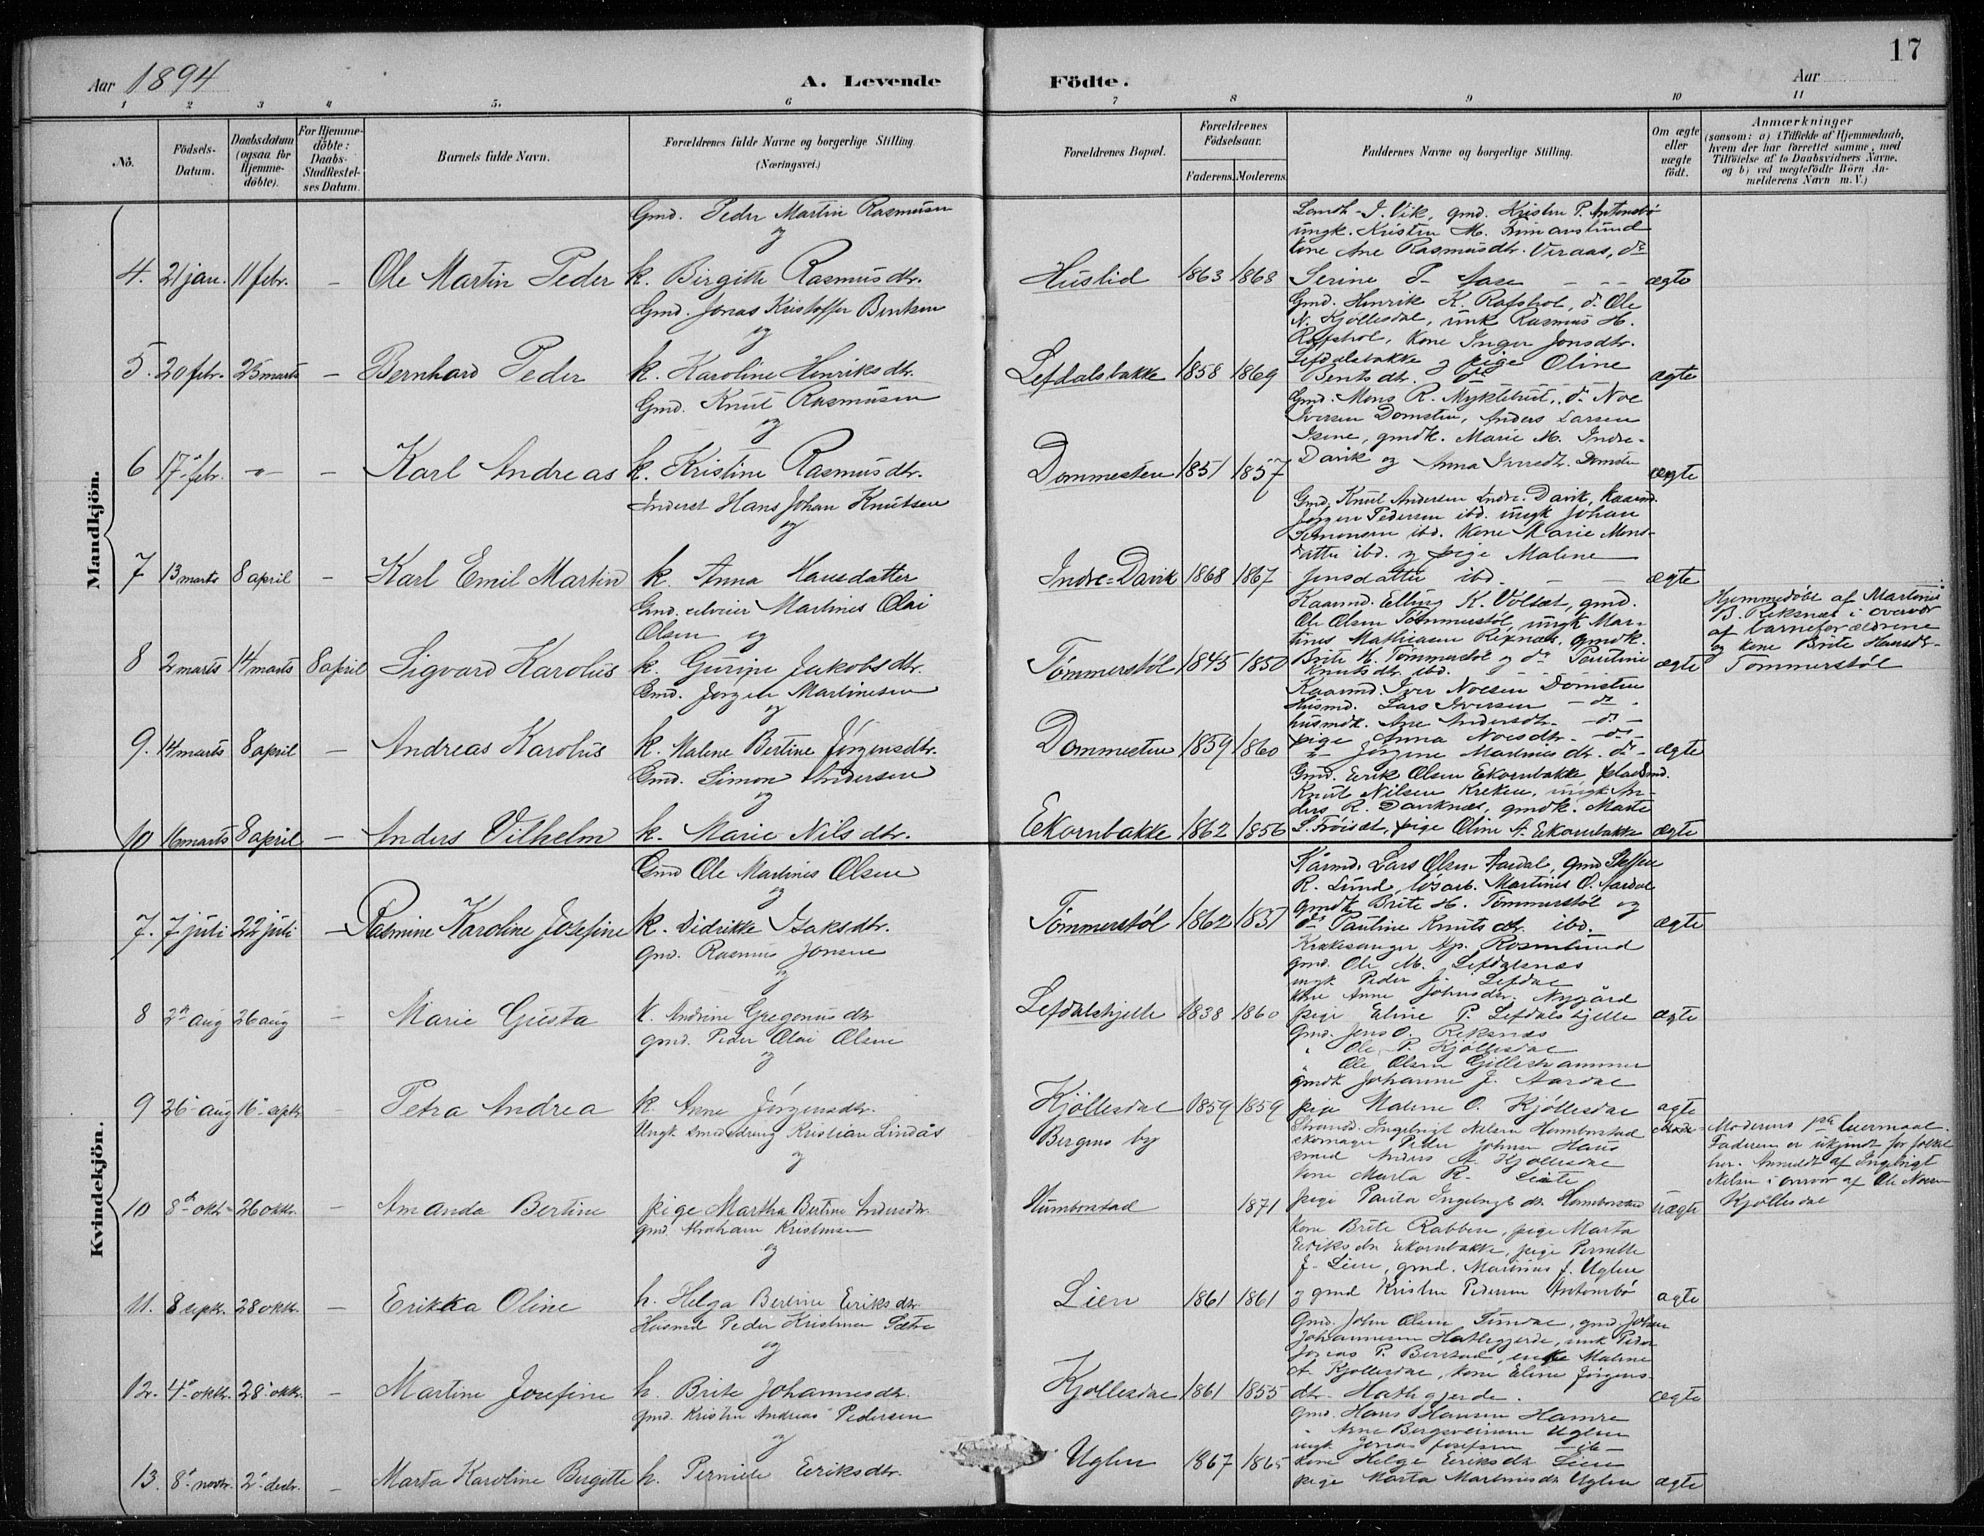 17
Aar 1894
A. Levende
Födte.
Aar
1 2 3 4 5. 6 7 8 9 10 11
Nö.
Födsels-Datum.
Daabsdatum (ogsaa for Hjemme-döbte).
For Hjemme-döbte: Daabs-Stadfæstel-ses Datum.
Barnets fulde Navn.
Forældrenes fulde Navne og borgerlige Stilling. (Næringsvei.)
Forældrenes Bopæl.
Forældrenes Födselsaar.
Faderens.
Moderens.
Faddernes Navne og borgerlige Stilling.
Om ægte eller uægte födt.
Anmærkninger
(saasom: a) i Tilfælde af Hjemmedaab,
hvem der har forrettet samme, med
Tilföielse af to Daabsvidners Navne.
og b) ved uægtefödte Börn An-
melderens Navn m. V.)
Mandkjön.
Gmd. Peder Martin Rasmusen
og
4. 21 jan. 11 febr. – Ole Martin Peder k. Birgitte Rasmusdtr. Huslid 1863 1868 ægte
Landh. I. Vik, gmd. Kristen P. Antonsbø
ungk. Kristen M.
kone Ane Rasmusdtr. Veraas, do
Serine
Gmd. Jonas Kristoffer Bentsen
og
5. 20 febr. 25 marts – Bernhard Peder k. Karoline Henriksdtr. Lefdalsbakke 1858 1869 ægte
Gmd. Henrik K. Rafshol, do Ole
N. Kjøllesdal, unk Rasmus H.
Rafshol, kone Inger Jonsdtr.
Lefdalsbakke og pige Oline
Bentsdtr. do
Gmd. Knut Rasmusen
og
6 17 febr. -"- – Karl Andreas k. Kristine Rasmusdtr. Dommesten 1851 1857 ægte
Gmd. Mons R. Myklebust, do Noe
Iversen Domsten, Anders Larsen
Isene, gmdk. Marie M. Indre-
Davik og Anna Iversdtr. Domsten
Inderst Hans Johan Knutsen
og
7 13 marts 8 april – Karl Emil Martin k. Anna Hansdatter Indre-Davik 1868 1867 ægte
Gmd. Knut Andersen Indre-Davik, kaarmd.
Jørgen Pedersen ibd. ungk Johan
Simonsen ibd. kone Marie Mons-
datter ibd. og pige Malene
Jensdatter ibd.
Gmd. Martines Olai
Olsen og
8 2 marts 14 marts 8 april Sigvard Karolus k. Gurine Jakobsdtr. Tømmerstøl 1845 1850 ægte
Kaarmd. Elling K. Voldset, gmd.
Ole Olsen Tømmerstøl, ungk Mar-
tines Mathiasen Rixnæs, gmdk.
Brite H. Tømmerstøl og do Pauline
Knutsdtr. ibd.
Hjemmedøbt af Martenis
B. Reksnæs i overvær
af barneforældrene
og kone Brite Hansdtr.
Tømmerstøl
Gmd. Jørgen Martinesen
og
9. 14 marts 8 april – Andreas Karolus k. Malene Bertine Jørgensdtr. Dommesten 1859 1860 ægte
Kaarmd. Iver Noesen Domsten
Husmd. Lars Iversen – do
husmdk. Ane Andersdtr. – do –
pige Anna Noesdtr. – do –
-"- Jørgine Martinesdtr. do –
Gmd. Simon Andersen
og
10 16 marts 8 april – Anders Vilhelm k. Marie Nilsdtr. Ekornbakke 1862 1856 ægte
Gmd. Eerik Olsen Ekornbakke, pladsmd.
Knut Nilsen Kreken, ungk An-
ders R. Daviknæs, gmdk. Marte
S. Frøiset, pige Oline A. Eekornbakke
Kvindekjön.
Gmd Ole Martines Olsen
og
7. 7 juli 22 juli – Rasmine Karoline Josefine k. Didrikke Isaksdtr. Tømmerstøl 1862 1851 ægte
Kårmd. Lars Olsen Aardal, gmd Steffen
R. Lund, løsarb. Martines O. Aardal
gmdk Brite H. Tømmerstøl og
do Pauline Knutsdtr. ibd.
Gmd. Rasmus Jonsen
og
8 2n aug 26 aug – Marie Gusta k. Andrine Gregoriusdtr Lefdalshjelle 1838 1860 ægte
Kirkesanger Rosenlund
gmd. Ole M. Lefdalsnæs
ungk Peder J. Lefdal
kone Anne Johnsdtr. Nygård
pige Eline P. Lefdalshjelle
gmd. Peder Olai Olsen
og
9 26 aug 16 septr – Petra Andrea k. Anne Jørgensdtr. Kjøllesdal 1859 1859 ægte
Gmd. Jens O. Reksnæs
" Ole P. Kjøllesdal
" Ole Olsen Gilleshammer
gmdk Johanne J. Aardal
pige Malene O. Kjøllesdal
Ungk smeddreng Kristian Lindås
og
Bergens by
10 8de oktr 26 oktr. – Amanda Bertine pige Martha Bertine Andersdtr. Humborstad 1871 uægte
Strands. Ingebrigt Nilsen Humborstad
skomager Peder Johnsen Haus
smed Anders A. Kjøllesdal
kone Marta R.
pige Paula Ingebrigtsdtr Humborstad
Moderens 1ste leiermaal.
Faderen er ukjendt for folket
her. Anmeldt af Ingebrigt
Nilsen i overvær af Ole Noesen
Kjøllesdal
gmd. Abraham Kristensen
og
11. 8 septr. 28 oktr. – Erikka Oline k. Helga Bertine Eeriksdtr Lien 1861 1861 ægte
kone Brite Rabben, pige Marta
Eeriksdtr Ekornbakke, pige Pernelle
J. Lien, gmd. Martinus J. Uglen
og gmd Kristen Pedersen Antonsbø
Husmd Peder Kristensen Sætre
og
12. 4 oktr. 28 oktr. – Martine Josefine k. Brite Johannesdtr. Kjøllesdal 1861 1855 ægte
Gmd. John Olsen Timdal, gmd Johan
Johannesen Hatlegjerde, unk Peder
Jonas P. Berstad, enke Malene
A Kjøllesdal, kone Eline Jørgens-
dtr. Hatlegjerde.
gmd. Kristen Andreas Pedersen
og
13. 8 novbr. 2 decbr. – Marta Karoline Birgitte k. Pernille Eeriksdtr. Uglen 1867 1865 ægte
Gmd. Hans Hansen Hamre
" Arne Bergsveinsen Uglen
ungk Jonas Josefsen – ib –
kone Helge Eeriksdtr Lien
pige Marta Martinusdtr Uglen